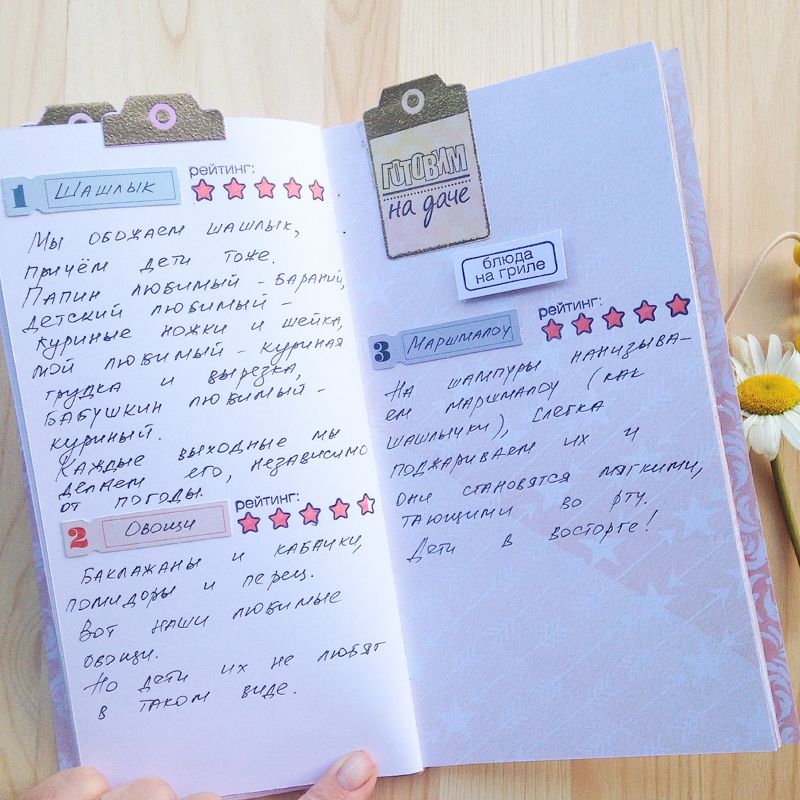 1 Шашлык
рейтинг:
Мы обожаем шашлык,
причём дети тоже.
Папин любимый - бараний,
детский любимый -
куриные ножки и шейка,
мой любимый - куриная
грудка и вырезка,
бабушкин любимый -
куриный.
Каждые выходные мы
делаем его, независимо
от погоды.
2 Овощи
рейтинг:
Баклажаны и кабачки,
помидоры и перец.
Вот наши любимые
овощи.
Но дети их не любят
в таком виде.
ГОТОВИМ
на даче
блюда
на гриле
3 Маршмалоу
рейтинг:
На шампуры нанизыва-
ем маршмалоу (как
шашлычки), слегка
поджариваем их и
они становятся мягкими,
тающими во рту.
Дети в восторге!